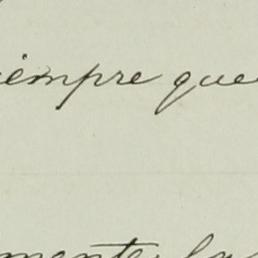 iempre que
mente la